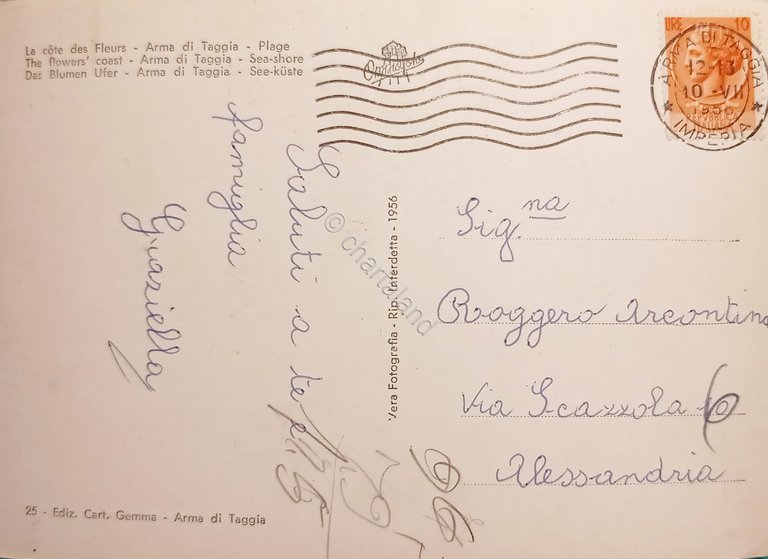 La côte des Fleurs - Arma di Taggia - Plage
The flowers' coast - Arma di Taggia - Sea-shore
Das Blumen Ufer - Arma di Taggia - See-küste
LIRE 10
ARMA DI TAGGIA
12-13
10 -VII
1956
IMPERIA
Saluti a te e
famiglia
Graziella
Vera Fotografia - Rip. Interdetta - 1956
© chartaland
Sig.na
Roggero Arcontina
Via Scazzola
Alessandria
25 - Ediz. Cart. Gemma - Arma di Taggia